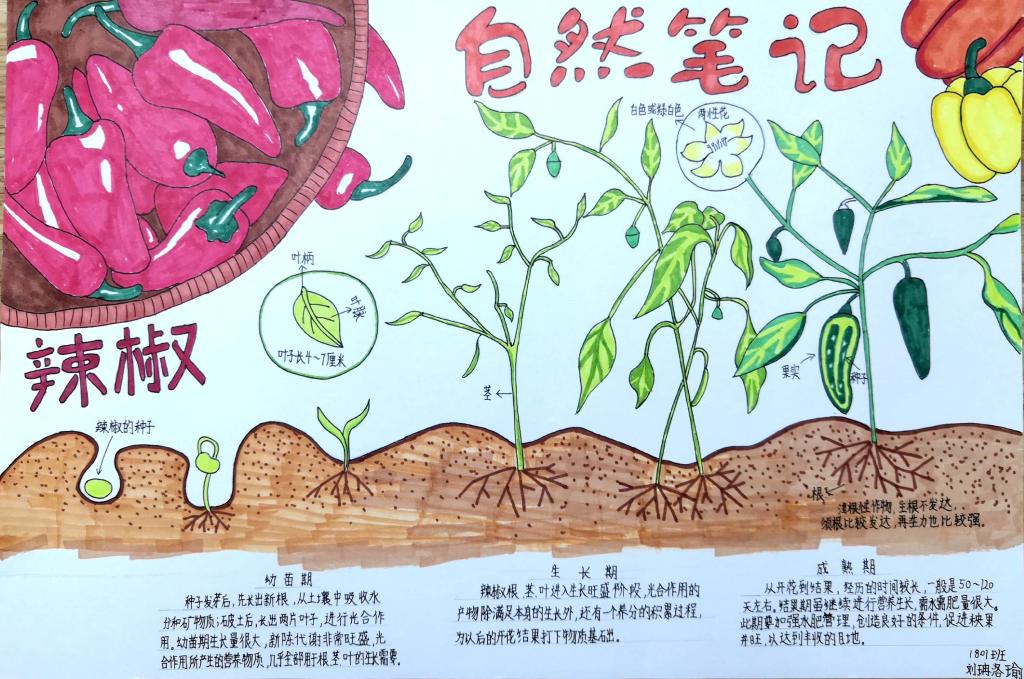 自然笔记
辣椒
白色或绿白色
两性花
叶柄
叶子长4~7厘米
茎
果实
种子
辣椒的种子
根
浅根性作物,主根不发达,
须根比较发达,再生力也比较强。
幼苗期
种子发芽后,先长出新根,从土壤中吸收水
分和矿物质;破土后,长出两片叶子,进行光合作
用。幼苗期生长量很大,新陈代谢非常旺盛,光
合作用所产生的营养物质,几乎全部用于根.茎.叶的生长需要。
生长期
辣椒根.茎.叶进入生长旺盛阶段,光合作用的
产物除满足本身的生长外,还有一个养分的积累过程,
为以后的开花结果打下物质基础。
成熟期
从开花到结果,经历的时间较长,一般是50~120
天左右。结果期虽继续进行营养生长,需水需肥量很大。
此期要加强水肥管理,创造良好的条件,促进秧果
并旺,以达到丰收的目地。
1801班
刘珃洛瑜